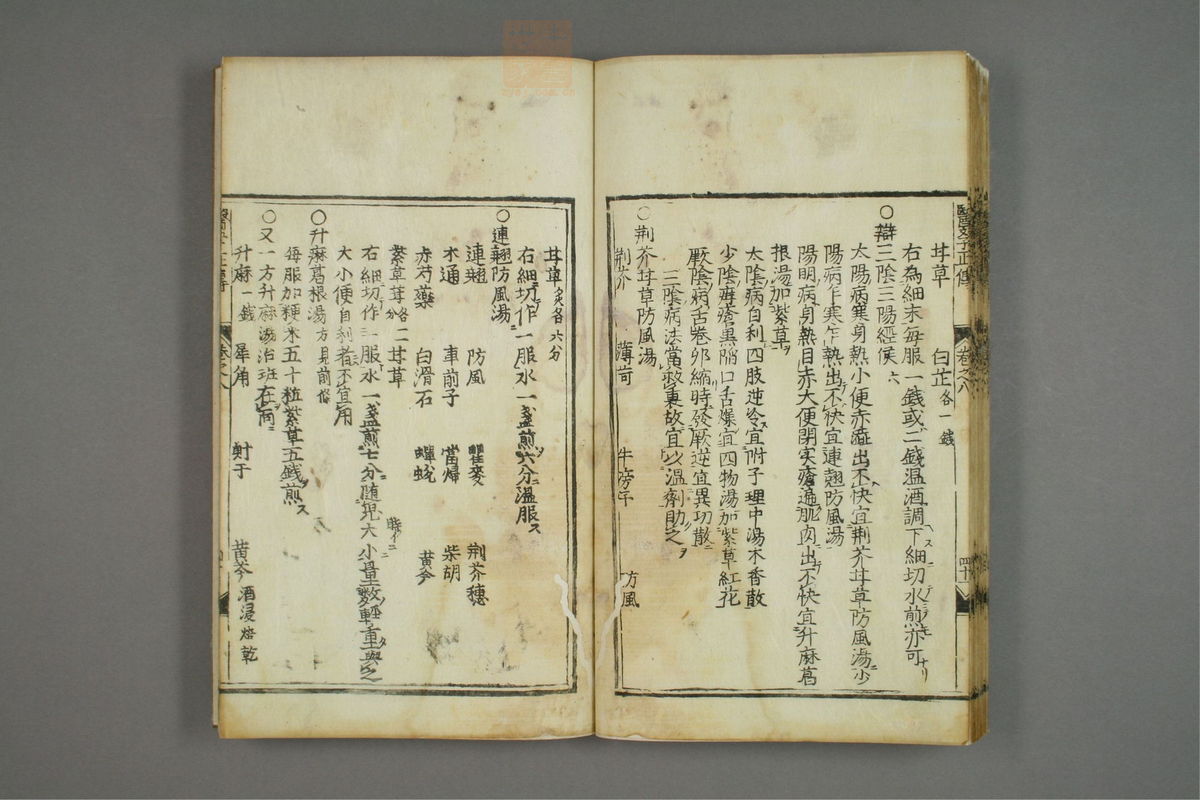 醫學正傳 卷之八 四十
甘草 白芷各一錢
右為細末每服一錢或二錢温酒調下細切水煎亦可
○辯三陰三陽經候六
太陽病寒身熱小便赤澁出不快宜荆芥甘草防風湯少
陽病乍寒乍熱出不快宜連翹防風湯
陽明病身熱目赤大便閉实瘡遍肌肉出不快宜升麻葛
根湯加紫草
太陰病自利四肢逆冷宜附子理中湯木香散
少陰病瘡黒陷口舌燥宜四物湯加紫草紅花
厥陰病舌卷卵縮時發厥逆宜異功散
三陰病法當救裏故宜以温劑助之
○荆芥甘草防風湯
荆芥 薄荷 牛蒡子 防風
甘草炙各六分
右細切作一服水一盞煎六分温服
○連翹防風湯
連翹 防風 瞿麥 荆芥穗
木通 車前子 當歸 柴胡
赤芍藥 白滑石 蟬蛻 黄芩
紫草茸各二分 甘草
右細切作一服水一盞煎七分随児大小量数輕重與之
大小便自利者不宜用
○升麻葛根湯方見前條
每服加粳米五十粒紫草五錢煎
○又一方升麻湯治斑在面
升麻一錢 犀角 射干 黄芩酒浸焙乾